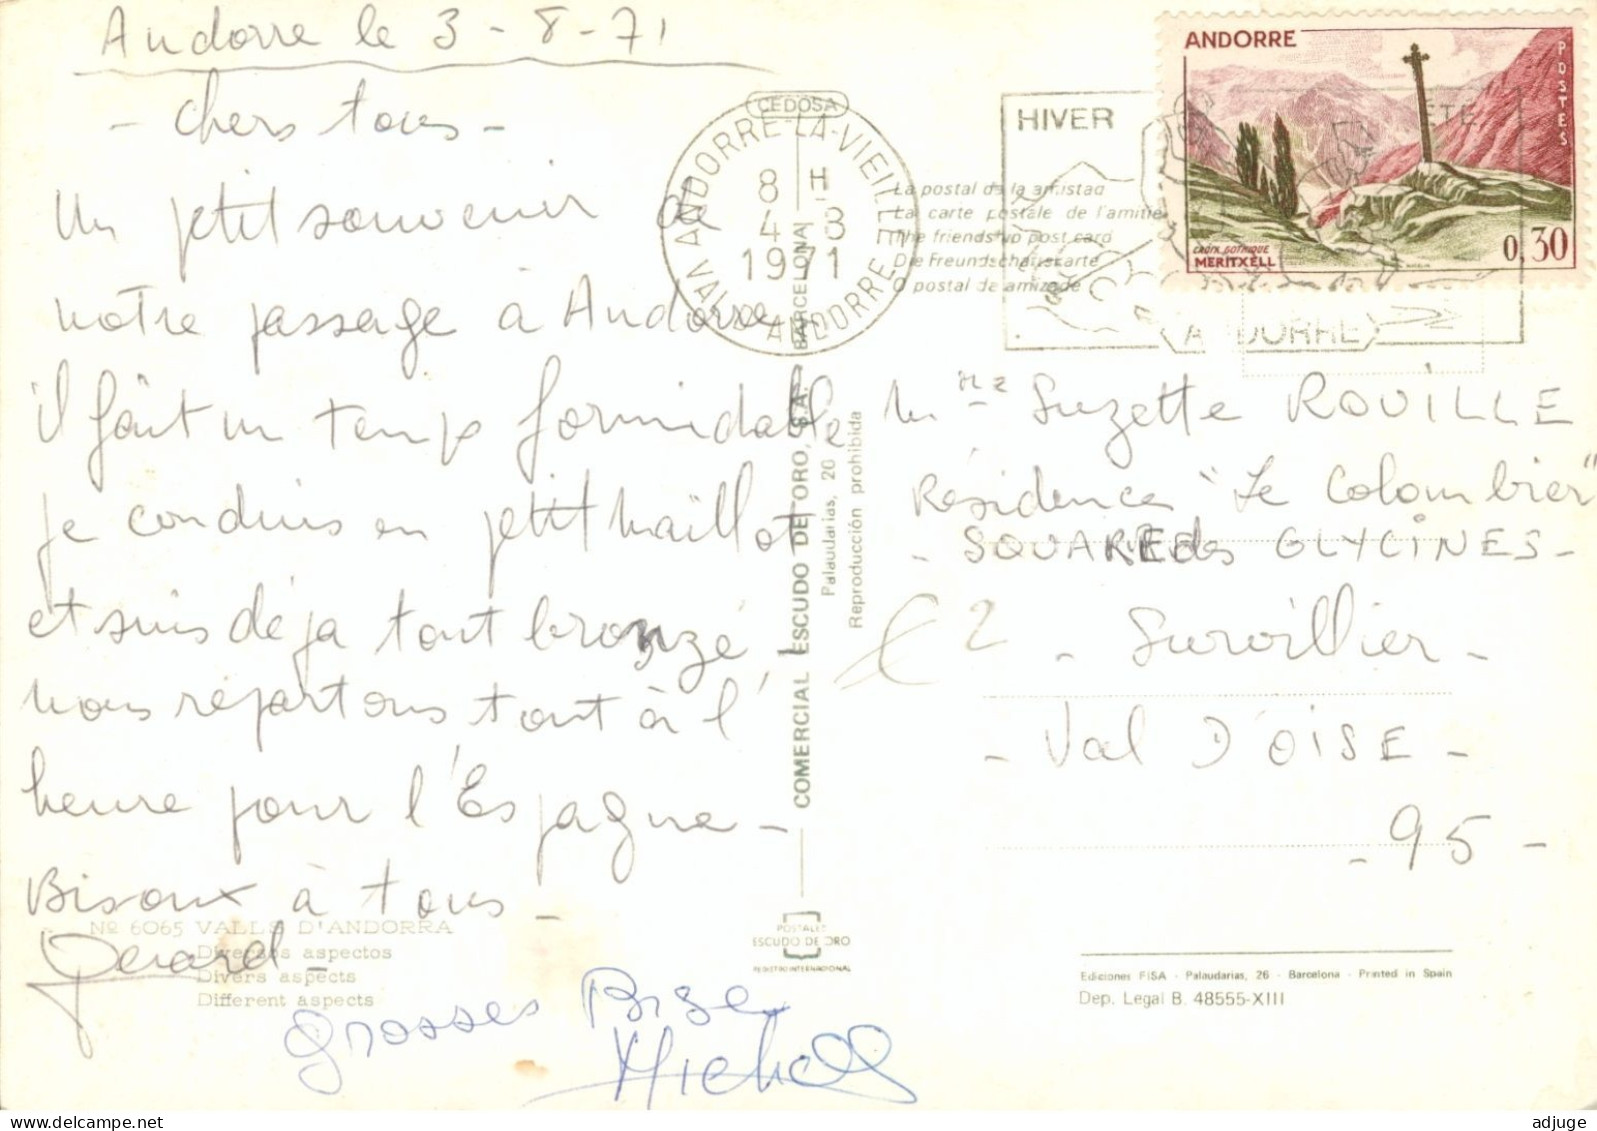 Andorre le 3-8-71
- Chers tous -
Un petit souvenir de
notre passage à Andorre
il fait un temps formidable
je conduis en petit maillot
et suis déja tout bronzé,
nous répartons tout à l'
heure pour l'Espagne -
Bisoux à tous -
Gérard -
Grosses Bise
Michell
Nº 6065 VALLS D'ANDORRA
Diversos aspectos
Divers aspects
Different aspects
CEDOSA
ANDORRE-LA-VIEILLE
8 H
4 - 8
1971
VAL D'ANDORRE
La postal de la amistad
La carte postale de l'amitié
The friendship post card
Die Freundschaftskarte
O postal de amizade
HIVER
ÉTÉ
ANDORRE
ANDORRE
POSTES
CROIX GOTHIQUE
MERITXELL
0,30
COMERCIAL ESCUDO DE ORO, S.A. - BARCELONA
Palaudarias, 26
Reproducción prohibida
POSTALES
ESCUDO DE ORO
REGISTRO INTERNACIONAL
Mme Suzette ROUILLE
Résidence "Le Colombier"
- SQUARE des GLYCINES -
- Survillier -
- Val D'OISE -
- 95 -
€ 2
Ediciones FISA - Palaudarias, 26 - Barcelona - Printed in Spain
Dep. Legal B. 48555-XIII
adjuge